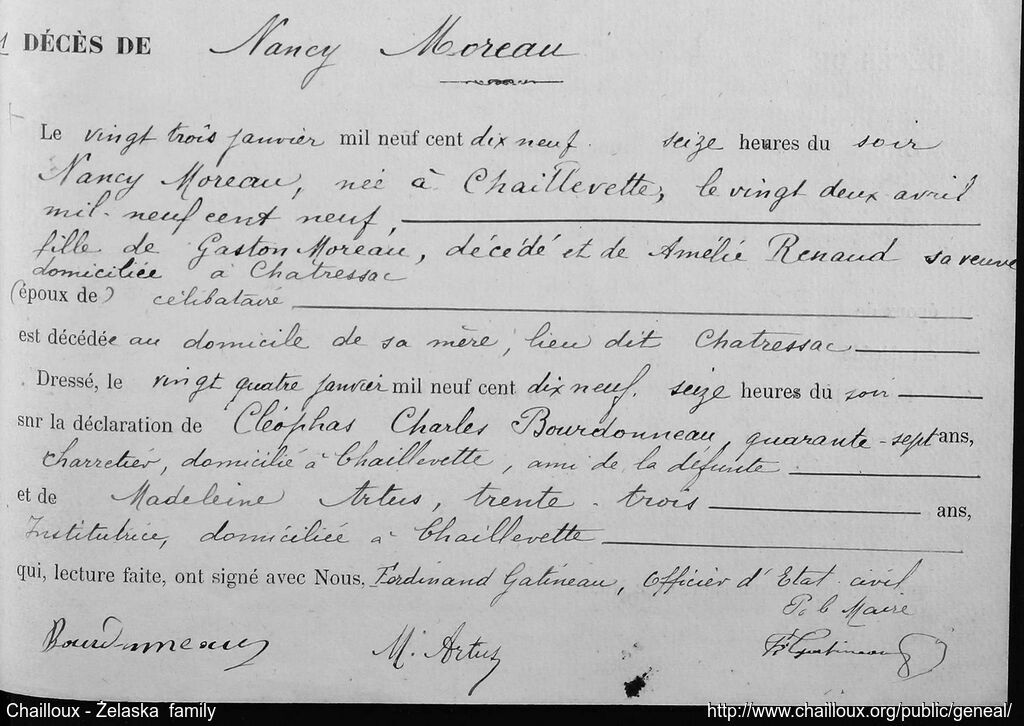 1 DÉCÈS DE Nancy Moreau
Le vingt trois janvier mil neuf cent dix neuf. seize heures du soir
Nancy Moreau, née à Chaillevette, le vingt deux avril
mil-neuf cent neuf,
fille de Gaston Moreau, décédé et de Amélie Renaud sa veuve
domiciliée à Chatressac
(époux de) célibataire
est décédée au domicile de sa mère, lieu dit Chatressac
Dressé, le vingt quatre janvier mil neuf cent dix neuf. seize heures du soir
snr la déclaration de Cléophas Charles Bourdonneau, quarante-sept ans,
charretier, domicilié à Chaillevette, ami de la défunte
et de Madeleine Artus, trente-trois ans,
Institutrice, domiciliée à Chaillevette
qui, lecture faite, ont signé avec Nous, Ferdinand Gatineau, Officier d'Etat civil
P. le Maire
Bourdonneau M. Artus Fd Gatineau
Chailloux - Żelaska family http://www.chailloux.org/public/geneal/